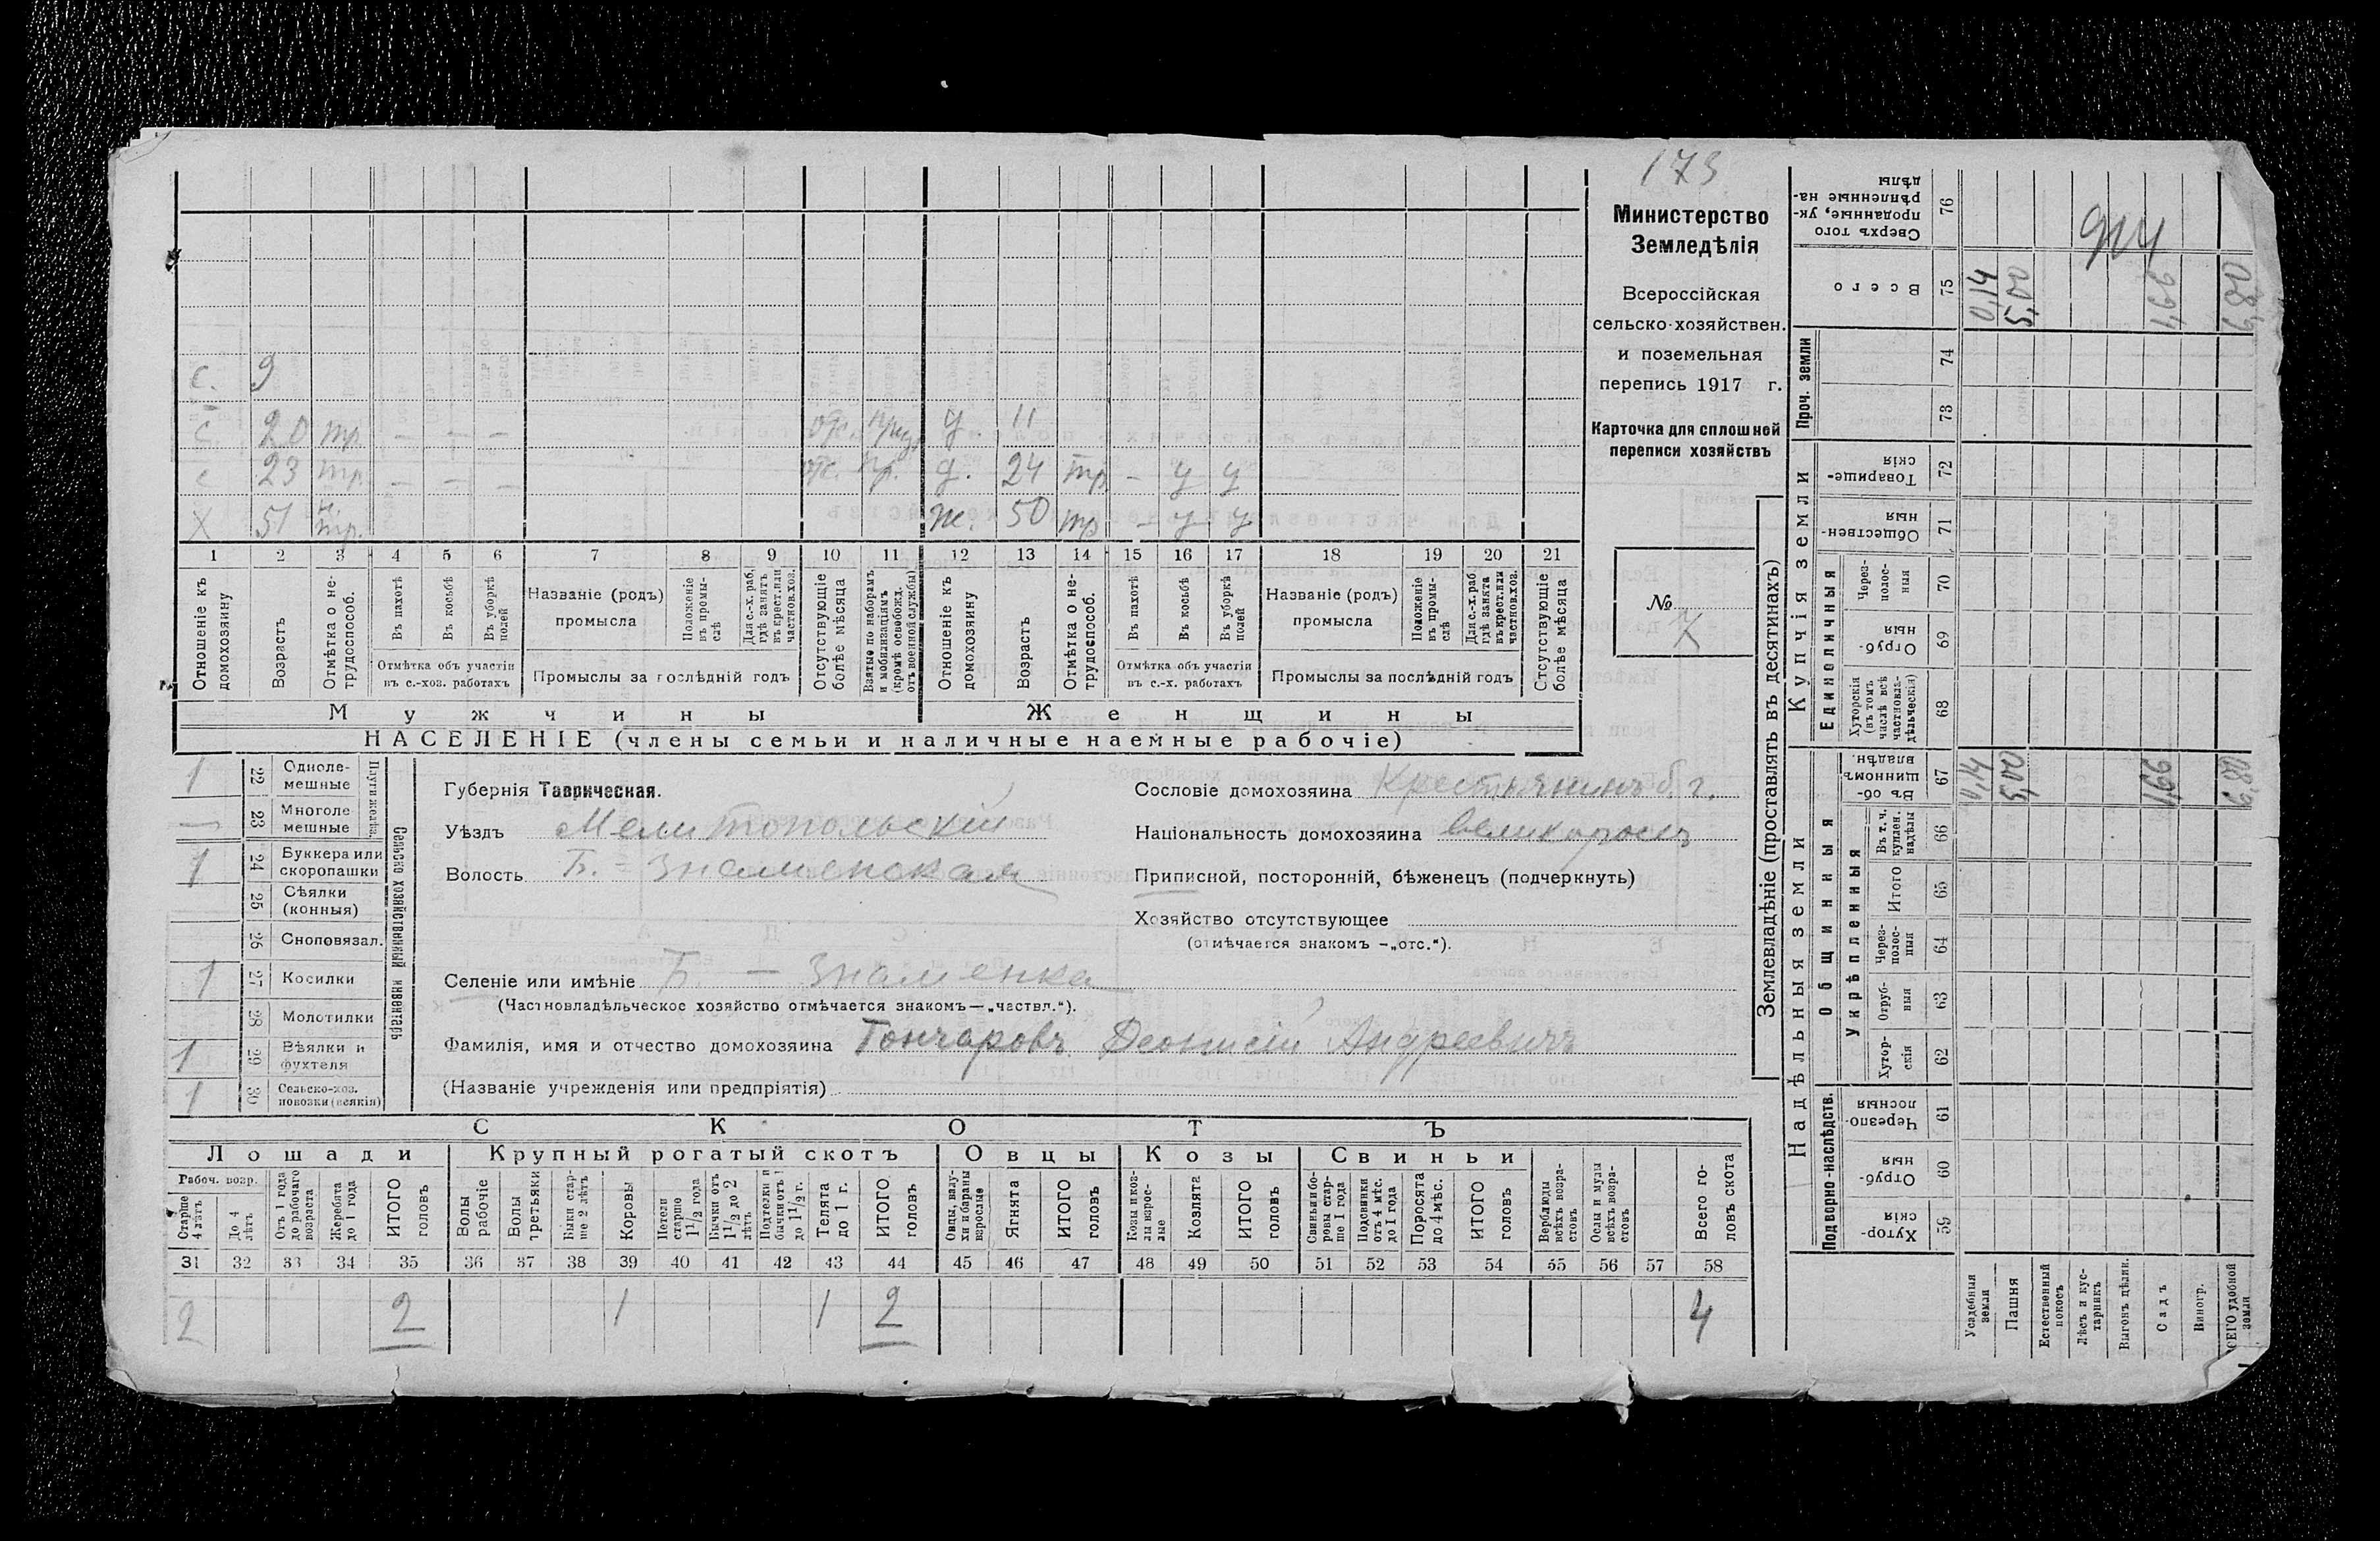 173
Министерство
Земледѣлія
Всероссійская
сельско-хозяйствен.
и поземельная
перепись 1917 г.
Карточка для сплошной
переписи хозяйствъ
№ 7
с. 9
с. 20 тр. — — — отс. д. 11
с 23 тр. — — — отс. пр. д. 24 тр - у у
Х 51 н. тр. ж. 50 тр - у у
1 2 3 4 5 6 7 8 9 10 11 12 13 14 15 16 17 18 19 20 21
Отношеніе къ домохозяину
Возрастъ
Отмѣтка о нетрудоспособ.
Въ пахотѣ
Въ косьбѣ
Въ уборкѣ полей
Отмѣтка объ участіи въ с.-хоз. работахъ
Названіе (родъ) промысла
Положеніе въ промыслѣ
Для с.-х. раб. гдѣ занятъ въ крест. или частнов. хоз.
Промыслы за послѣдній годъ
Отсутствующіе болѣе мѣсяца
Взятые по наборамъ и мобилизаціямъ (кромѣ освобожд. отъ военной службы)
Отношеніе къ домохозяину
Возрастъ
Отмѣтка о нетрудоспособ.
Въ пахотѣ
Въ косьбѣ
Въ уборкѣ полей
Отмѣтка объ участіи въ с.-х. работахъ
Названіе (родъ) промысла
Положеніе въ промыслѣ
Для с.-х. раб гдѣ занята въ крест. или частнов. хоз.
Промыслы за послѣдній годъ
Отсутствующіе болѣе мѣсяца
Мужчины Женщины
НАСЕЛЕНІЕ (члены семьи и наличные наемные рабочіе)
Сельско хозяйственный инвентарь
1 22 Одноле-мешные
— 23 Многоле мешные
1 24 Буккера или скоропашки
25 Сѣялки (конныя)
26 Сноповязал.
1 27 Косилки
28 Молотилки
1 29 Вѣялки и фухтеля
1 30 Сельско-хоз. повозки (всякія)
Губернія Таврическая.
Уѣздъ Мелитопольскій
Волость Б. - Знаменская
Селеніе или имѣніе Б. — Знаменка
(Частновладѣльческое хозяйство отмѣчается знакомъ — „частвл.“).
Фамилія, имя и отчество домохозяина Гончаровъ Деонисій Андреевичъ
(Названіе учрежденія или предпріятія)
Сословіе домохозяина Крестьянинъ б. г.
Національность домохозяина великороссъ
Приписной, посторонній, бѣженецъ (подчеркнуть)
Хозяйство отсутствующее
(отмѣчается знакомъ — „отс.“).
СКОТЪ
Лошади Крупный рогатый скотъ Овцы Козы Свиньи
Рабоч. возр.
Старше 4 лѣтъ
До 4 лѣтъ
Отъ 1 года до рабочаго возраста
Жеребята до 1 года
ИТОГО головъ
Волы рабочіе
Волы третьяки
Быки старше 2 лѣтъ
Коровы
Нетели старше 1 1/2 года
Бычки отъ 1 1/2 до 2 лѣтъ
Подтелки и бычки отъ 1 до 1 1/2 г.
Телята до 1 г.
ИТОГО головъ
Овцы, валухи и бараны взрослые
Ягнята
ИТОГО головъ
Козы и козлы взрослые
Козлята
ИТОГО головъ
Свиньи и боровы старше 1 года
Подсвинки отъ 4 мѣс. до 1 года
Поросята до 4 мѣс.
ИТОГО головъ
Верблюды всѣхъ возрастовъ
Ослы и мулы всѣхъ возрастовъ
Всего головъ скота
31 32 33 34 35 36 37 38 39 40 41 42 43 44 45 46 47 48 49 50 51 52 53 54 55 56 57 58
2 2 1 1 2 4
Землевладѣніе (проставлять въ десятинахъ)
Надѣльныя земли
Подворно-наслѣдств.
Хуторскія 59
Отрубныя 60
Черезполосныя 61
Общинныя
Укрѣпленныя
Хуторскія 62
Отрубныя 63
Черезполосныя 64
Итого 65
Въ т. ч. куплен. надѣлы 66
Въ общинномъ владѣн. 67
0,14 5,00 1,66 6,80
Купчія земли
Единоличныя
Хуторскія (въ томъ числѣ всѣ частновладѣльческія) 68
Отрубныя 69
Черезполосныя 70
Общественныя 71
Товарищескія 72
Проч. земли
73 74
Всего 75
0,14 5,00 1,66 6,80
Сверхъ того проданные, укрѣпленные надѣлы 76
Усадебныя земли
Пашня
Естественный покосъ
Лѣсъ и кустарникъ
Выгонъ цѣлин.
Садъ
Виногр.
ВСЕГО удобной земли